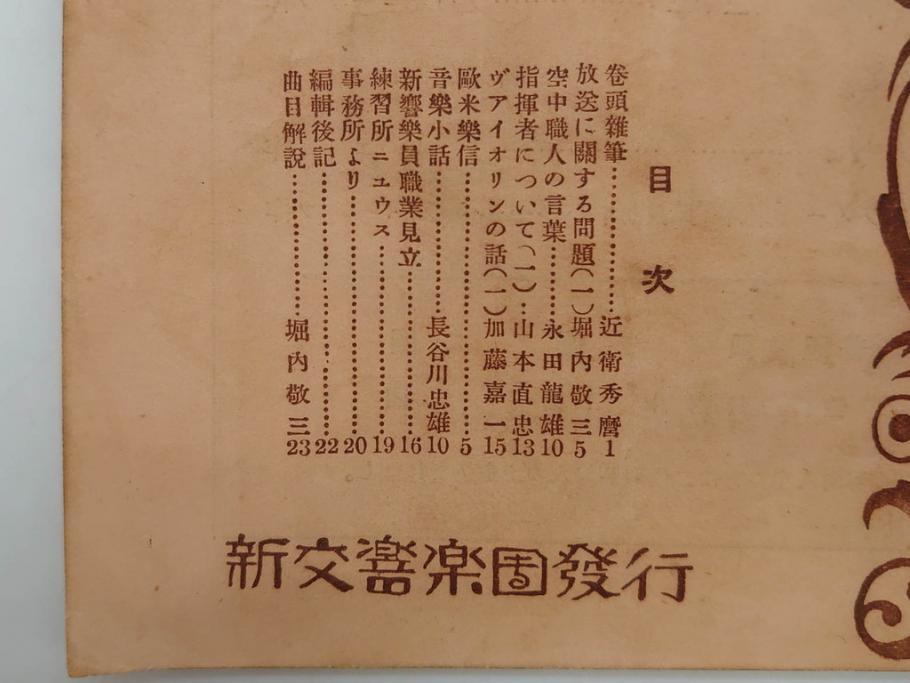 目次
卷頭雜筆…………近衛秀麿 1
放送に關する問題(一)堀內敬三 5
空中職人の言葉……永田龍雄 10
指揮者について(一)‥山本直忠 13
ヴアイオリンの話(一)加藤嘉一 15
歐米樂信………………………… 5
音樂小話……………長谷川忠雄 10
新響樂員職業見立……………… 16
練習所ニユウス………………… 19
事務所より……………………… 20
編輯後記………………………… 22
曲目解說……………堀內敬三 23
新交響楽団發行